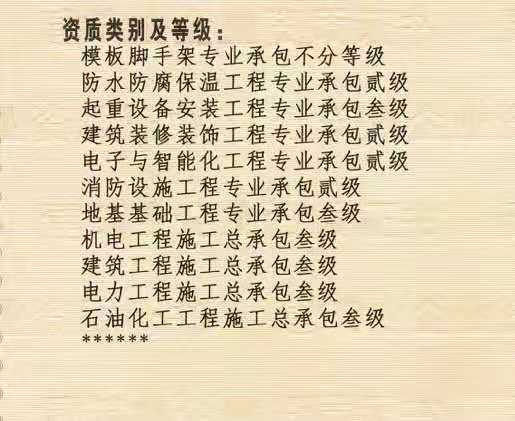 资质类别及等级：
模板脚手架专业承包不分等级
防水防腐保温工程专业承包贰级
起重设备安装工程专业承包叁级
建筑装修装饰工程专业承包贰级
电子与智能化工程专业承包贰级
消防设施工程专业承包贰级
地基基础工程专业承包叁级
机电工程施工总承包叁级
建筑工程施工总承包叁级
电力工程施工总承包叁级
石油化工工程施工总承包叁级
******